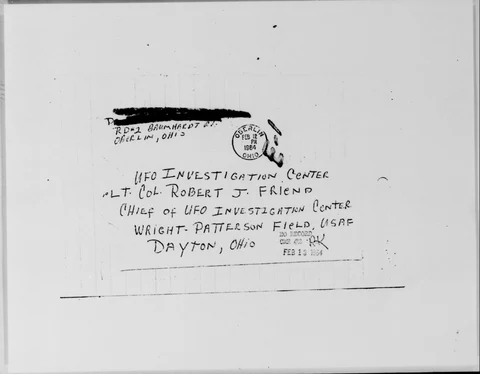 RD#2 BAUMHARDT RD.
OBERLIN, OHIO
OBERLIN
FEB 12
PM
1964
OHIO
UFO INVESTIGATION CENTER
LT. COL. ROBERT J. FRIEND
CHIEF OF UFO INVESTIGATION CENTER
WRIGHT-PATTERSON FIELD, USAF
DAYTON, OHIO
NO RECORD
RK
FEB 13 1964